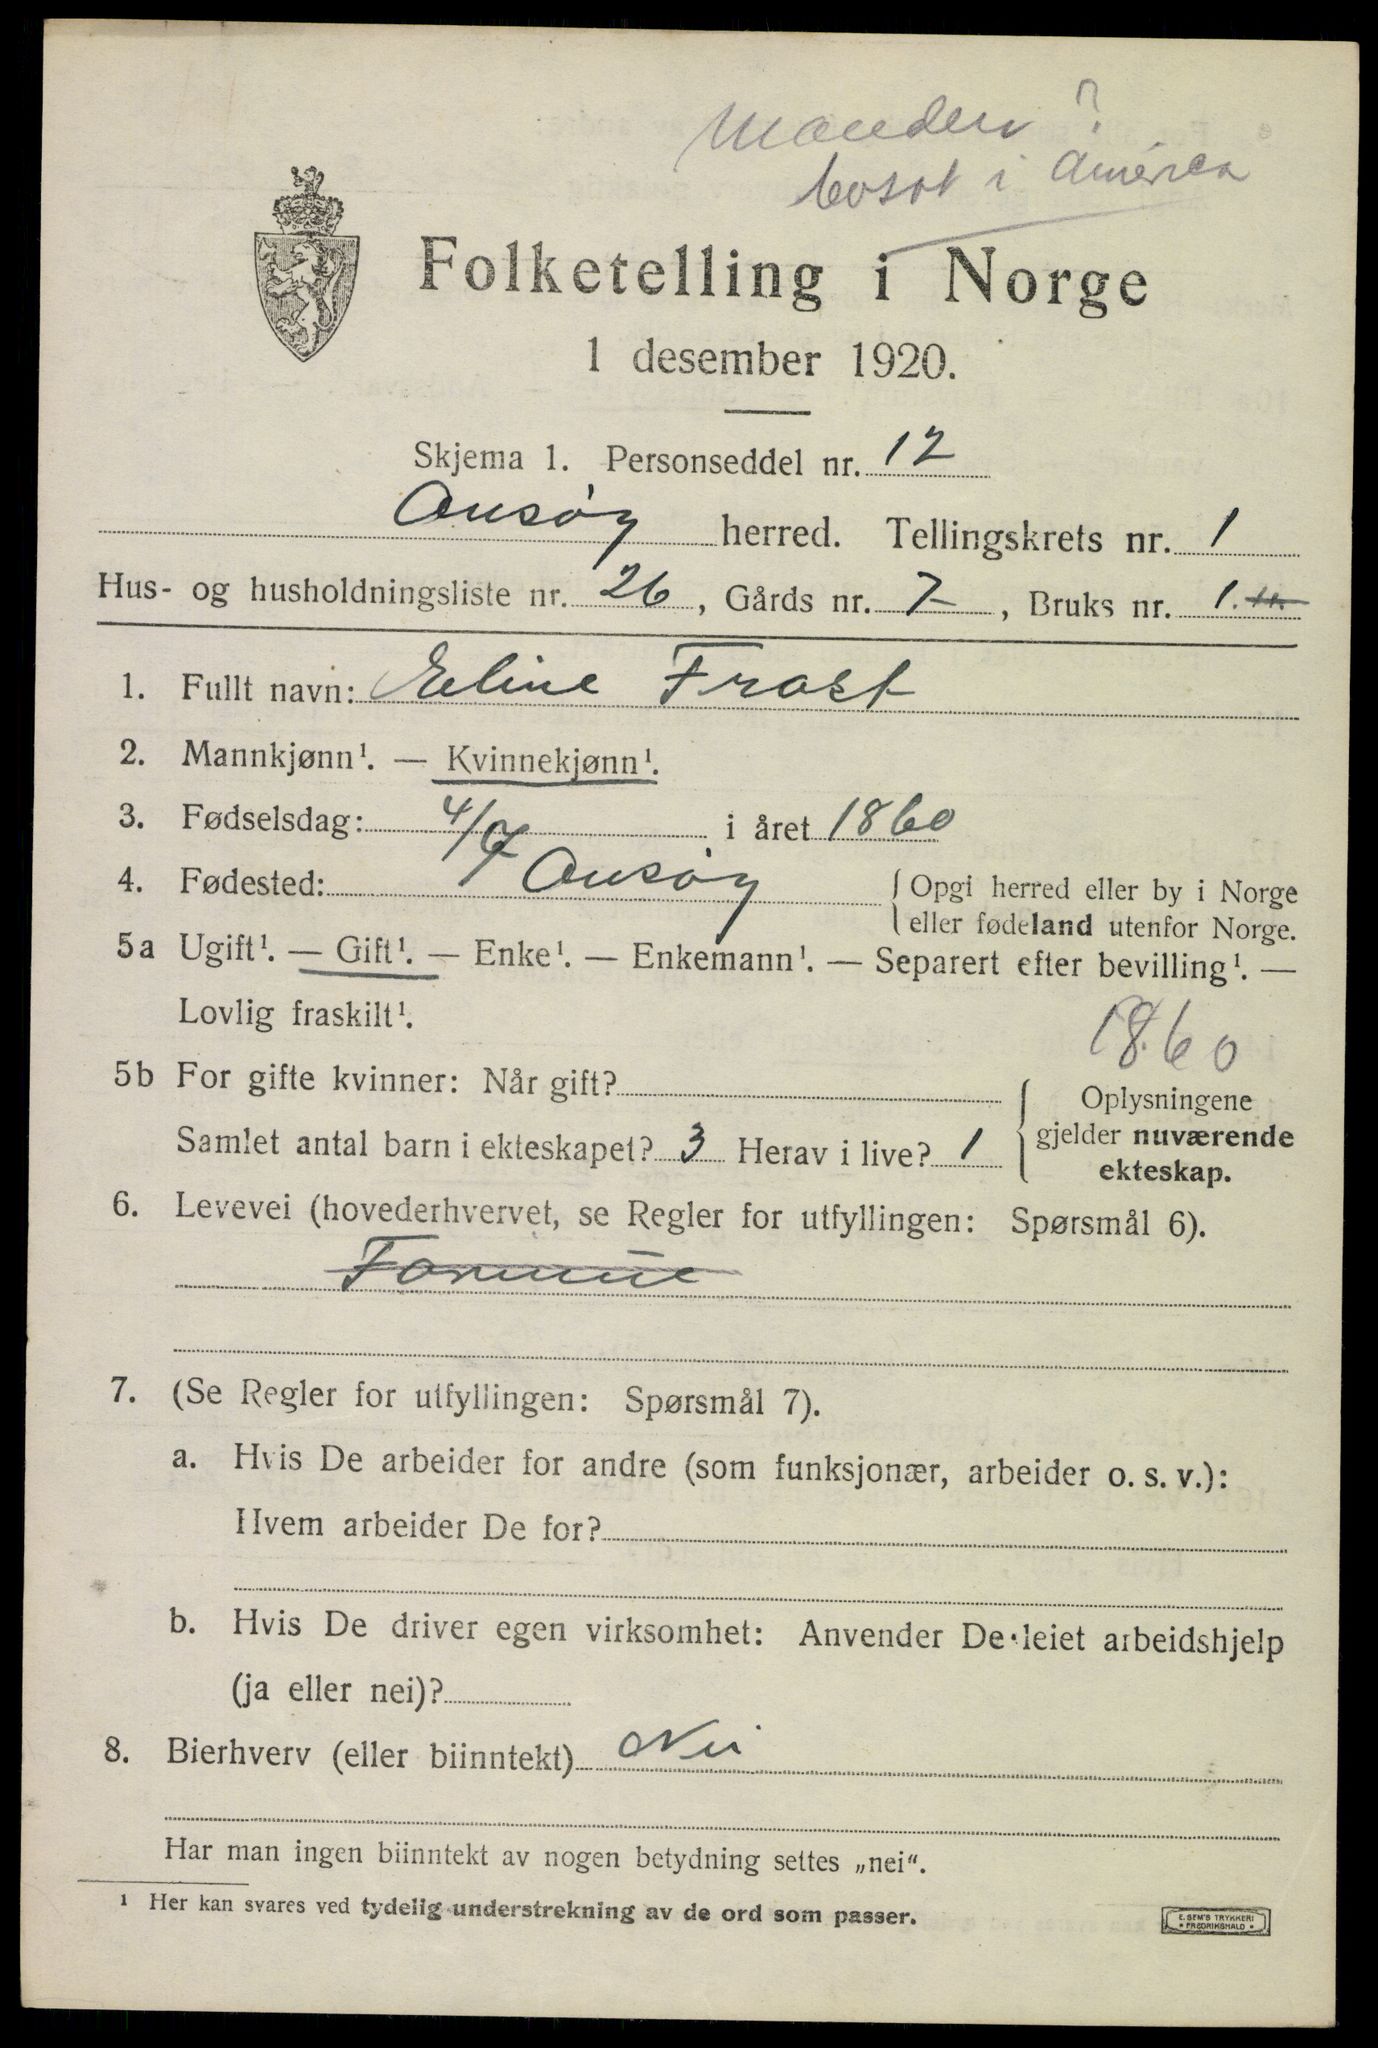 Manden ?
bosat i America
Folketelling i Norge
1 desember 1920.
Skjema 1. Personseddel nr. 12
Ausøy herred. Tellingskrets nr. 1
Hus- og husholdningsliste nr. 26, Gårds nr. 7, Bruks nr. 1.
1. Fullt navn: Eline Frost
2. Mannkjønn¹. — Kvinnekjønn¹.
3. Fødselsdag: 4/7 i året 1860
4. Fødested: Ausøy { Opgi herred eller by i Norge
eller fødeland utenfor Norge.
5a Ugift¹. — Gift¹. — Enke¹. — Enkemann¹. — Separert efter bevilling¹. —
Lovlig fraskilt¹.
1860
5b For gifte kvinner: Når gift?
Samlet antal barn i ekteskapet? 3 Herav i live? 1
Oplysningene
gjelder nuværende
ekteskap.
6. Levevei (hovederhvervet, se Regler for utfyllingen: Spørsmål 6).
7. (Se Regler for utfyllingen: Spørsmål 7).
a. Hvis De arbeider for andre (som funksjonær, arbeider o. s. v.):
Hvem arbeider De for?
b. Hvis De driver egen virksomhet: Anvender De leiet arbeidshjelp
(ja eller nei)?
8. Bierhverv (eller biinntekt) Nei
Har man ingen biinntekt av nogen betydning settes „nei“.
¹ Her kan svares ved tydelig understrekning av de ord som passer.
E. SEM'S TRYKKERI
* FREDRIKSHALD *